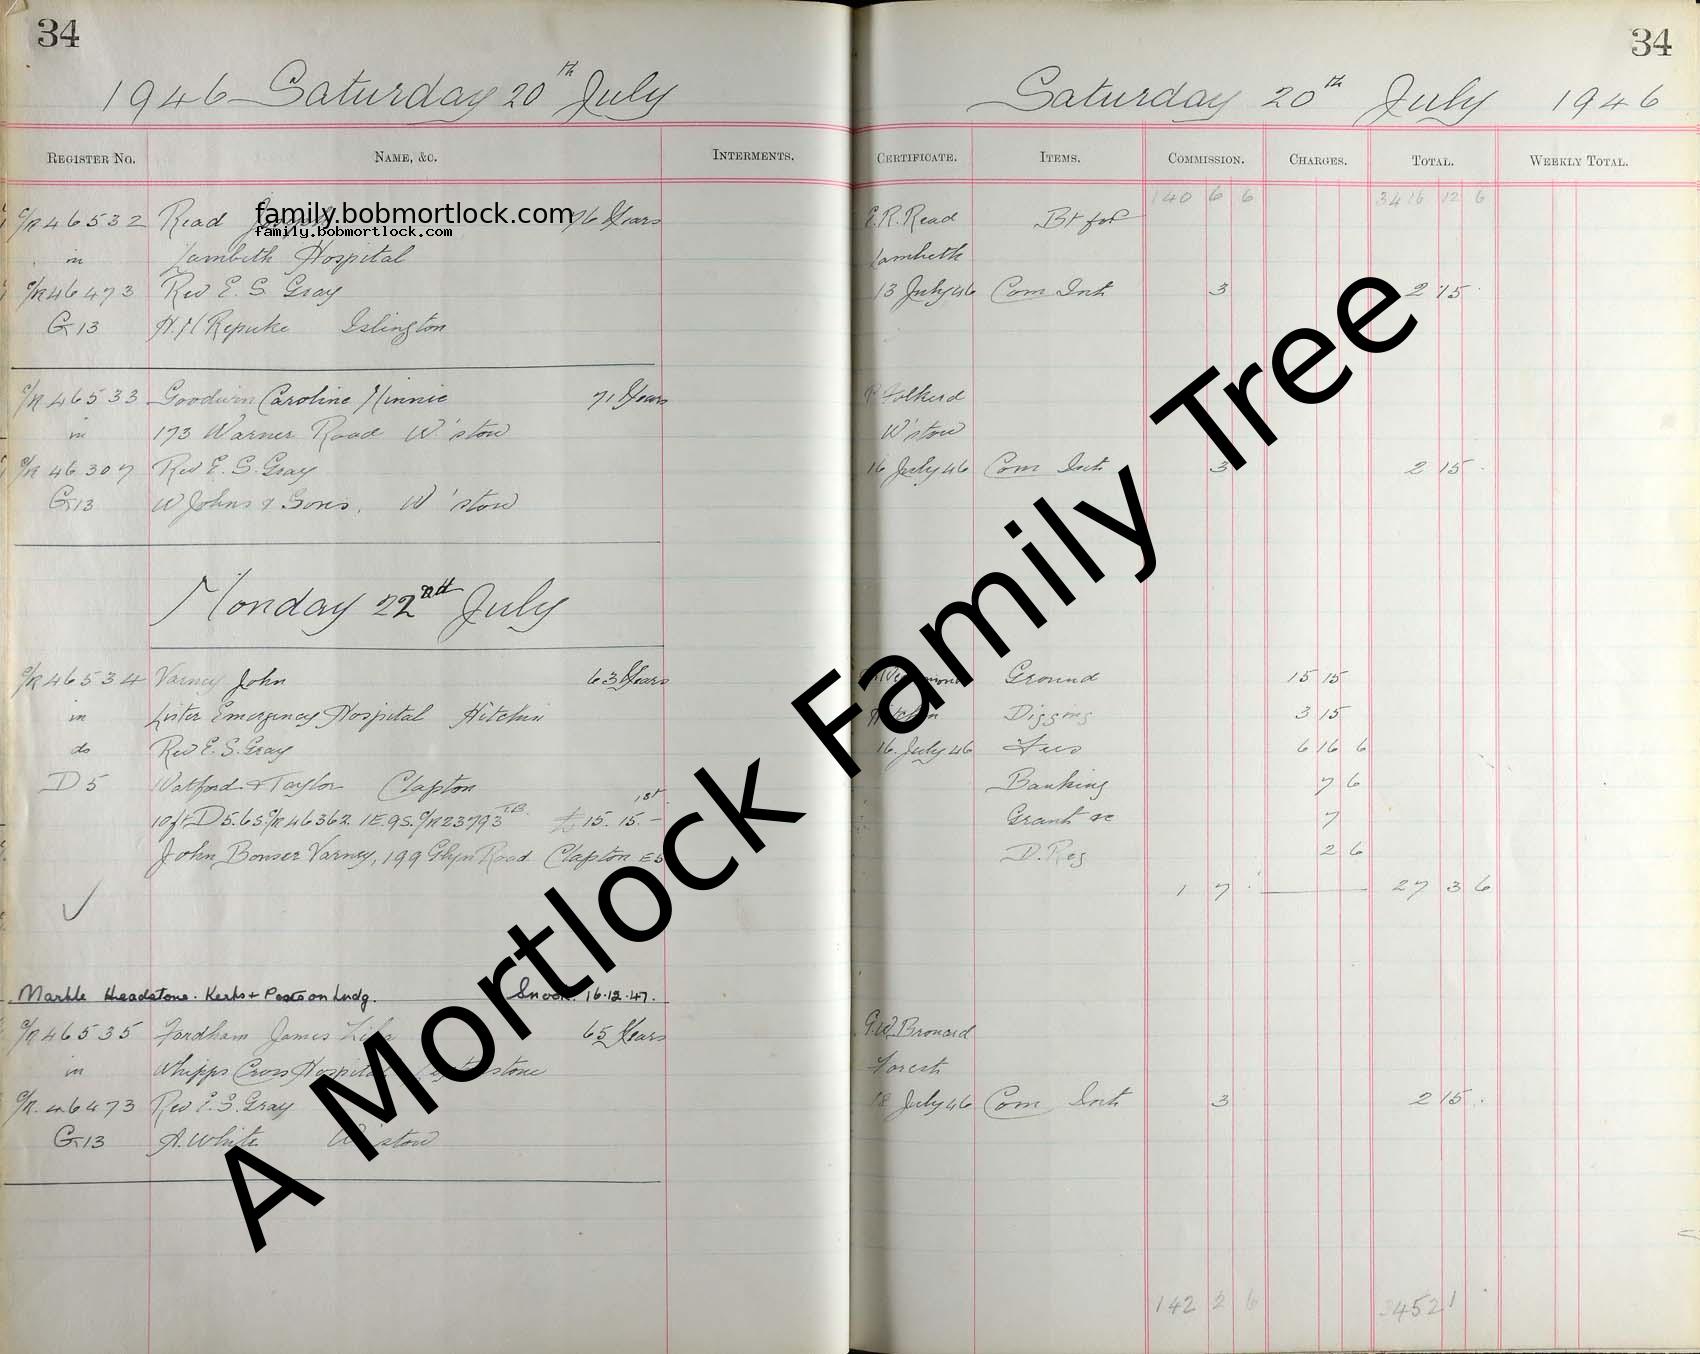 34
1946 Saturday 20th July
REGISTER NO. NAME, &C. INTERMENTS.
C/R 46532 Read 76 Years
family.bobmortlock.com
family.bobmortlock.com
in Lambeth Hospital
C/R 46473 Rev E. S. Gray
G 13 Islington
C/R 46533 Goodwin Caroline Minnie 71 Years
in 173 Warner Road W'stow
C/R 46307 Rev E. S. Gray
G 13 W Johns & Sons. W'stow
Monday 22nd July
C/R 46534 Varney John 63 Years
in Lister Emergency Hospital Hitchin
do Rev E. S. Gray
D 5 Watford & Taylor Clapton
1st
10ft D5.6S. C/R 46362. 1E.9S. C/R 23793 T.B. £15. 15. -
John Bonser Varney, 199 Glyn Road Clapton E5
Marble Headstone. Kerbs + Posts on Lndg. Snook. 16.12.47.
C/R 46535 Fordham James 65 Years
in Whipps Cross Hospital
C/R 46473 Rev E. S. Gray
G 13 A. White W'stow
34
Saturday 20th July 1946
CERTIFICATE. ITEMS. COMMISSION. CHARGES. TOTAL. WEEKLY TOTAL.
140 6 6 3416 12 6
E. R. Read Bt for
Lambeth
13 July 46 Com Int 3 2 15
Folkerd
W'stow
16 July 46 Com Int 3 2 15
Ground 15 15
Hitchin Digging 3 15
16 July 46 Fees 6 16 6
Banking 7 6
Grant &c 7
D. Reg 2 6
1 7 27 3 6
G. W. Brouard
Forest
18 July 46 Com Int 3 2 15
142 2 6 3452 1
A Mortlock Family Tree